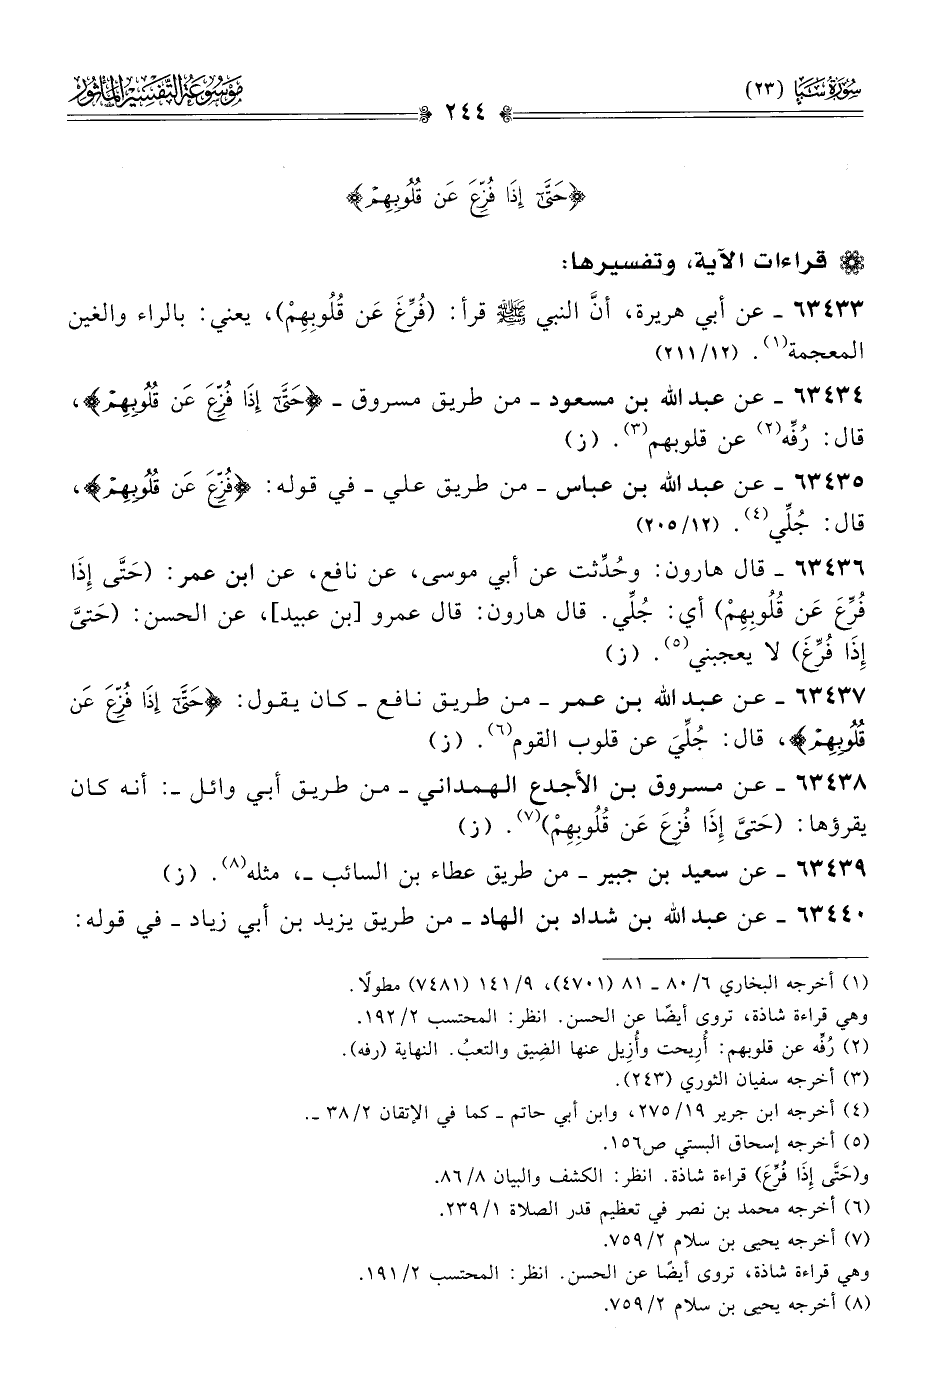 سُورَةُ سَبَإٍ (٢٣)
٢٤٤
مَوْسُوعَةُ التَّفْسِيرِ المَأْثُورِ
﴿حَتَّىٰٓ إِذَا فُزِّعَ عَن قُلُوبِهِمْ﴾
قراءات الآية، وتفسيرها:
٦٣٤٣٣ ـ عن أبي هريرة، أنَّ النبي ﷺ قرأ: (فُرِّغَ عَن قُلُوبِهِمْ)، يعني: بالراء والغين
المعجمة(١). (٢١١/١٢)
٦٣٤٣٤ ـ عن عبد الله بن مسعود ـ من طريق مسروق ـ ﴿حَتَّىٰٓ إِذَا فُزِّعَ عَن قُلُوبِهِمْ﴾،
قال: رُفِّه(٢) عن قلوبهم(٣). (ز)
٦٣٤٣٥ ـ عن عبد الله بن عباس ـ من طريق علي ـ في قوله: ﴿فُزِّعَ عَن قُلُوبِهِمْ﴾،
قال: جُلِّي(٤). (٢٠٥/١٢)
٦٣٤٣٦ ـ قال هارون: وحُدِّثت عن أبي موسى، عن نافع، عن ابن عمر: (حَتَّى إِذَا
فُرِّعَ عَن قُلُوبِهِمْ) أي: جُلِّي. قال هارون: قال عمرو [بن عبيد]، عن الحسن: (حَتىَّ
إِذَا فُرِّغَ) لا يعجبني(٥). (ز)
٦٣٤٣٧ ـ عن عبد الله بن عمر ـ من طريق نافع ـ كان يقول: ﴿حَتَّىٰٓ إِذَا فُزِّعَ عَن
قُلُوبِهِمْ﴾، قال: جُلِّيَ عن قلوب القوم(٦). (ز)
٦٣٤٣٨ ـ عن مسروق بن الأجدع الهمداني ـ من طريق أبي وائل ـ: أنه كان
يقرؤها: (حَتىَّ إِذَا فُزِعَ عَن قُلُوبِهِمْ)(٧). (ز)
٦٣٤٣٩ ـ عن سعيد بن جبير ـ من طريق عطاء بن السائب ـ، مثله(٨). (ز)
٦٣٤٤٠ ـ عن عبد الله بن شداد بن الهاد ـ من طريق يزيد بن أبي زياد ـ في قوله:
(١) أخرجه البخاري ٦/ ٨٠ ـ ٨١ (٤٧٠١)، ٩/ ١٤١ (٧٤٨١) مطولًا.
وهي قراءة شاذة، تروى أيضًا عن الحسن. انظر: المحتسب ٢/ ١٩٢.
(٢) رُفِّه عن قلوبهم: أُريحت وأُزيل عنها الضِيق والتعبُ. النهاية (رفه).
(٣) أخرجه سفيان الثوري (٢٤٣).
(٤) أخرجه ابن جرير ١٩/ ٢٧٥، وابن أبي حاتم ـ كما في الإتقان ٢/ ٣٨ ـ.
(٥) أخرجه إسحاق البستي ص١٥٦.
و(حَتَّى إِذَا فُرِّعَ) قراءة شاذة. انظر: الكشف والبيان ٨/ ٨٦.
(٦) أخرجه محمد بن نصر في تعظيم قدر الصلاة ١/ ٢٣٩.
(٧) أخرجه يحيى بن سلام ٢/ ٧٥٩.
وهي قراءة شاذة، تروى أيضًا عن الحسن. انظر: المحتسب ٢/ ١٩١.
(٨) أخرجه يحيى بن سلام ٢/ ٧٥٩.